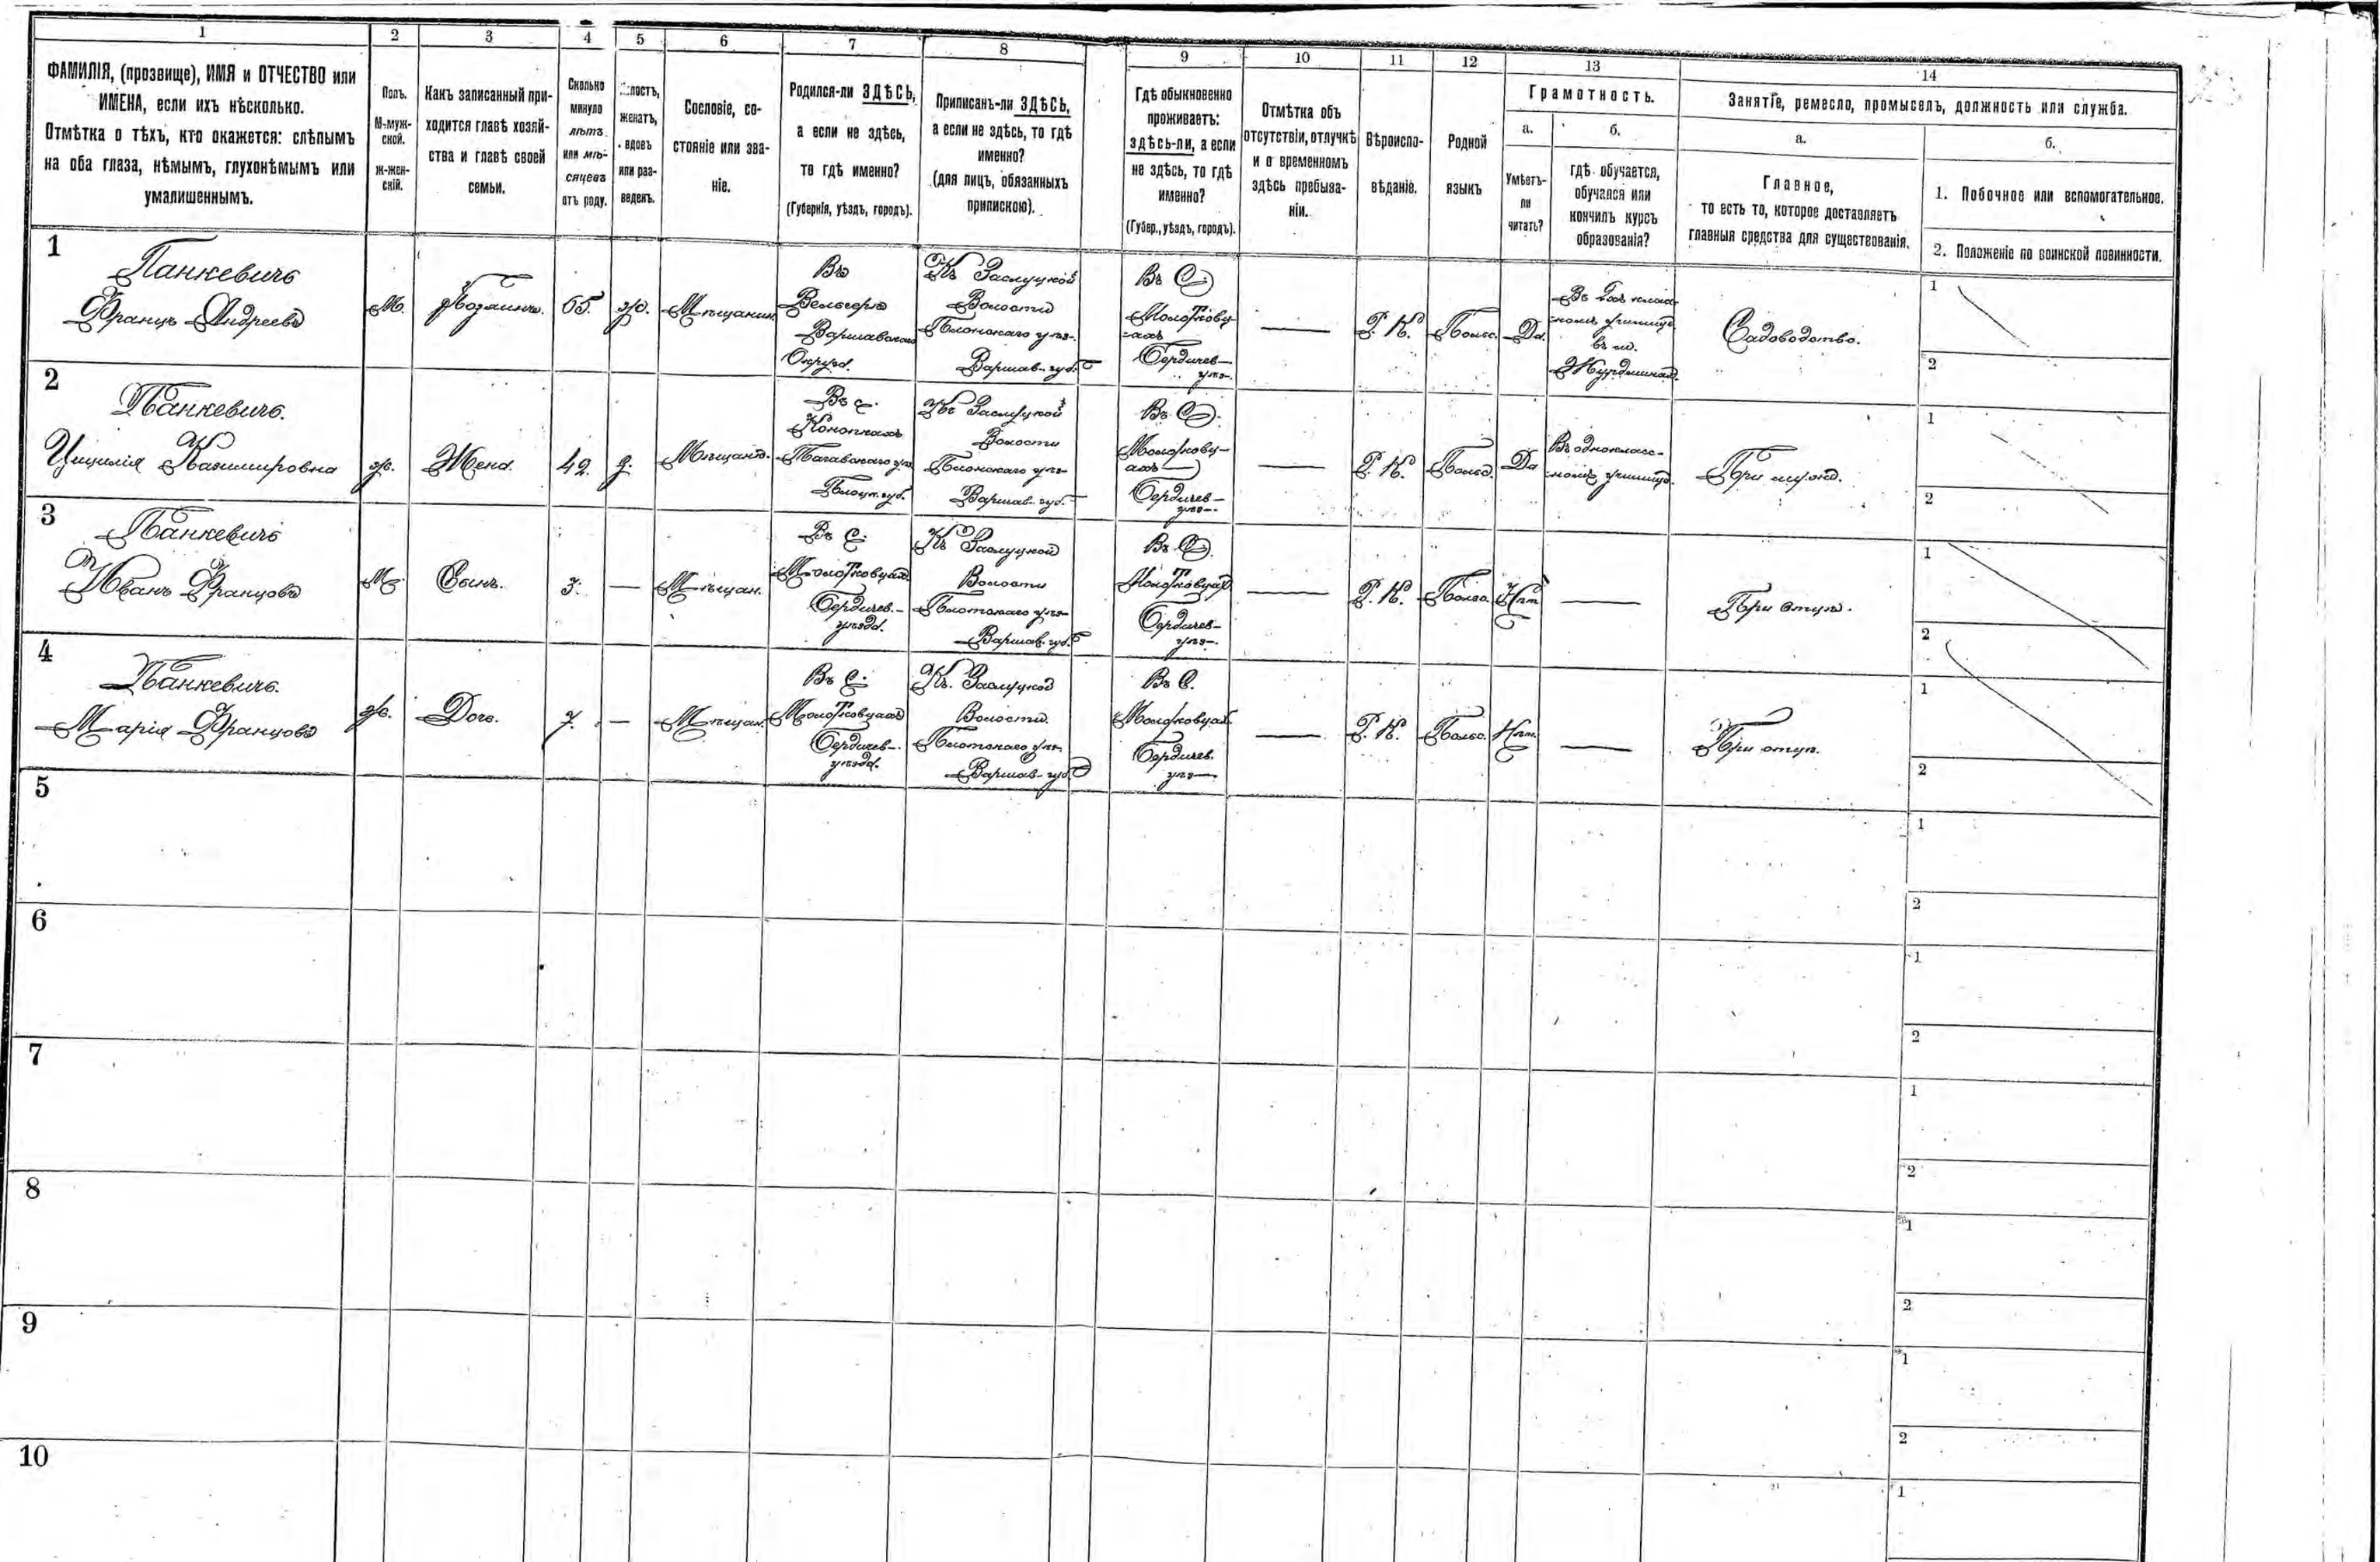 1
2
3
4
5
6
7
8
9
10
11
12
13
14
ФАМИЛІЯ, (прозвище), ИМЯ и ОТЧЕСТВО или
ИМЕНА, если ихъ нѣсколько.
Отмѣтка о тѣхъ, кто окажется: слѣпымъ
на оба глаза, нѣмымъ, глухонѣмымъ или
умалишеннымъ.
Полъ.
М-муж-
ской.
Ж-жен-
скій.
Какъ записанный при-
ходится главѣ хозяй-
ства и главѣ своей
семьи.
Сколько
минуло
лѣтъ
или мѣ-
сяцевъ
отъ роду.
женатъ,
вдовъ
или раз-
веденъ.
Сословіе, со-
стояніе или зва-
ніе.
Родился-ли ЗДѢСЬ,
а если не здѣсь,
то гдѣ именно?
(Губернія, уѣздъ, городъ).
Приписанъ-ли ЗДѢСЬ,
а если не здѣсь, то гдѣ
именно?
(для лицъ, обязанныхъ
припискою).
Гдѣ обыкновенно
проживаетъ:
ЗДѢСЬ-ЛИ, а если
не здѣсь, то гдѣ
именно?
(Губер., уѣздъ, городъ).
Отмѣтка объ
отсутствіи, отлучкѣ
и о временномъ
здѣсь пребыва-
ніи.
Вѣроиспо-
вѣданіе.
Родной
языкъ
Грамотность.
а.
Умѣетъ-
ли
читать?
б.
гдѣ обучается,
обучался или
кончилъ курсъ
образованія?
Занятіе, ремесло, промыселъ, должность или служба.
а.
Главное,
то есть то, которое доставляетъ
главныя средства для существованія.
б.
1. Побочное или вспомогательное.
2. Положеніе по воинской повинности.
1
Панкевичъ
Францъ Андреевъ
М.
Хозяинъ.
65.
ж.
Мѣщанинъ
Въ
Варшавскаго
Округа.
Къ
Волости
Варшав. губ.
Въ С.
Молотков-
цахъ
Бердичев-
уѣз-
Р. К.
Польс.
Да.
Садоводство.
1
2
2
Панкевичъ.
Цицилія Казимировна
ж.
Жена.
42.
З.
Мѣщанъ.
Въ с.
Плоцк. губ.
Къ
Волости
Варшав. губ.
Въ С.
Молотков-
цахъ
Бердичев-
уѣз-
Р. К.
Польс.
Да
Въ одноклас-
номъ училищѣ.
При мужѣ.
1
2
3
Панкевичъ
Иванъ Францовъ
М.
Сынъ.
3.
—
Мѣщан.
Въ С.
Молотковцахъ
Бердичев.-
уѣзда.
Къ
Волости
Варшав. губ.
Въ С.
Молотковцахъ
Бердичев-
уѣз-
Р. К.
Польс.
Нѣтъ
При отцѣ.
1
2
4
Панкевичъ.
Марія Францова
ж.
Дочь.
7.
—
Мѣщан.
Въ С.
Молотковцахъ
Бердичев-
уѣзда.
Къ
Волости.
Варшав. губ.
Въ С.
Молотковцахъ
Бердичев.
уѣз-
Р. К.
Польс.
Нѣт.
При отцѣ.
1
2
5
1
2
6
1
2
7
1
2
8
1
2
9
1
2
10
1